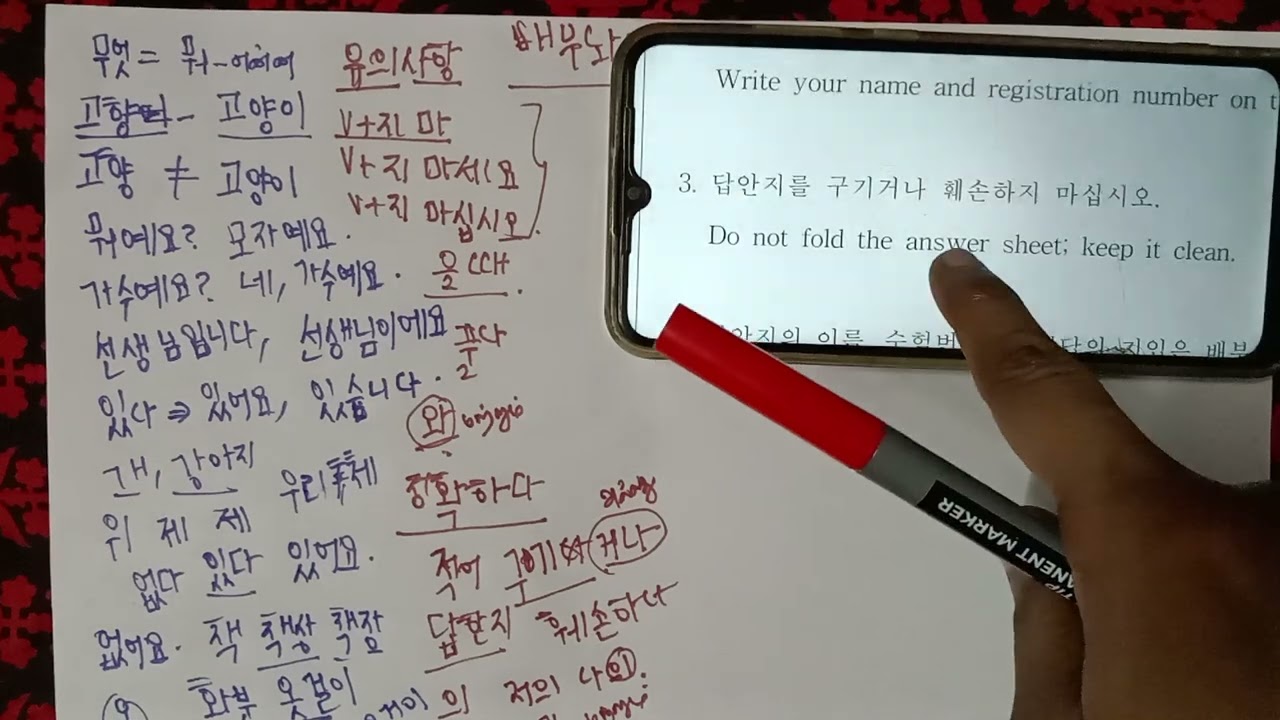 무엇 = 뭐
고양이
고양 ≠ 고양이
뭐예요? 모자예요.
가수예요? 네, 가수예요.
선생님입니다, 선생님이에요
있다 ⇒ 있어요, 있습니다.
개, 강아지 우리
위 제 제
없다 있다 있어요.
없어요. 책 책상 책잠
화분 옷걸이
유의사항
V+지 마
V+지 마세요
V+지 마십시오.
을 때.
푸다
와
정확하다
적어 구기 거나
답안지 훼손하나
의 저의 나의.
배부
Write your name and registration number on t
3. 답안지를 구기거나 훼손하지 마십시오.
Do not fold the answer sheet; keep it clean.
이름 수험번
PERMANENT MARKER